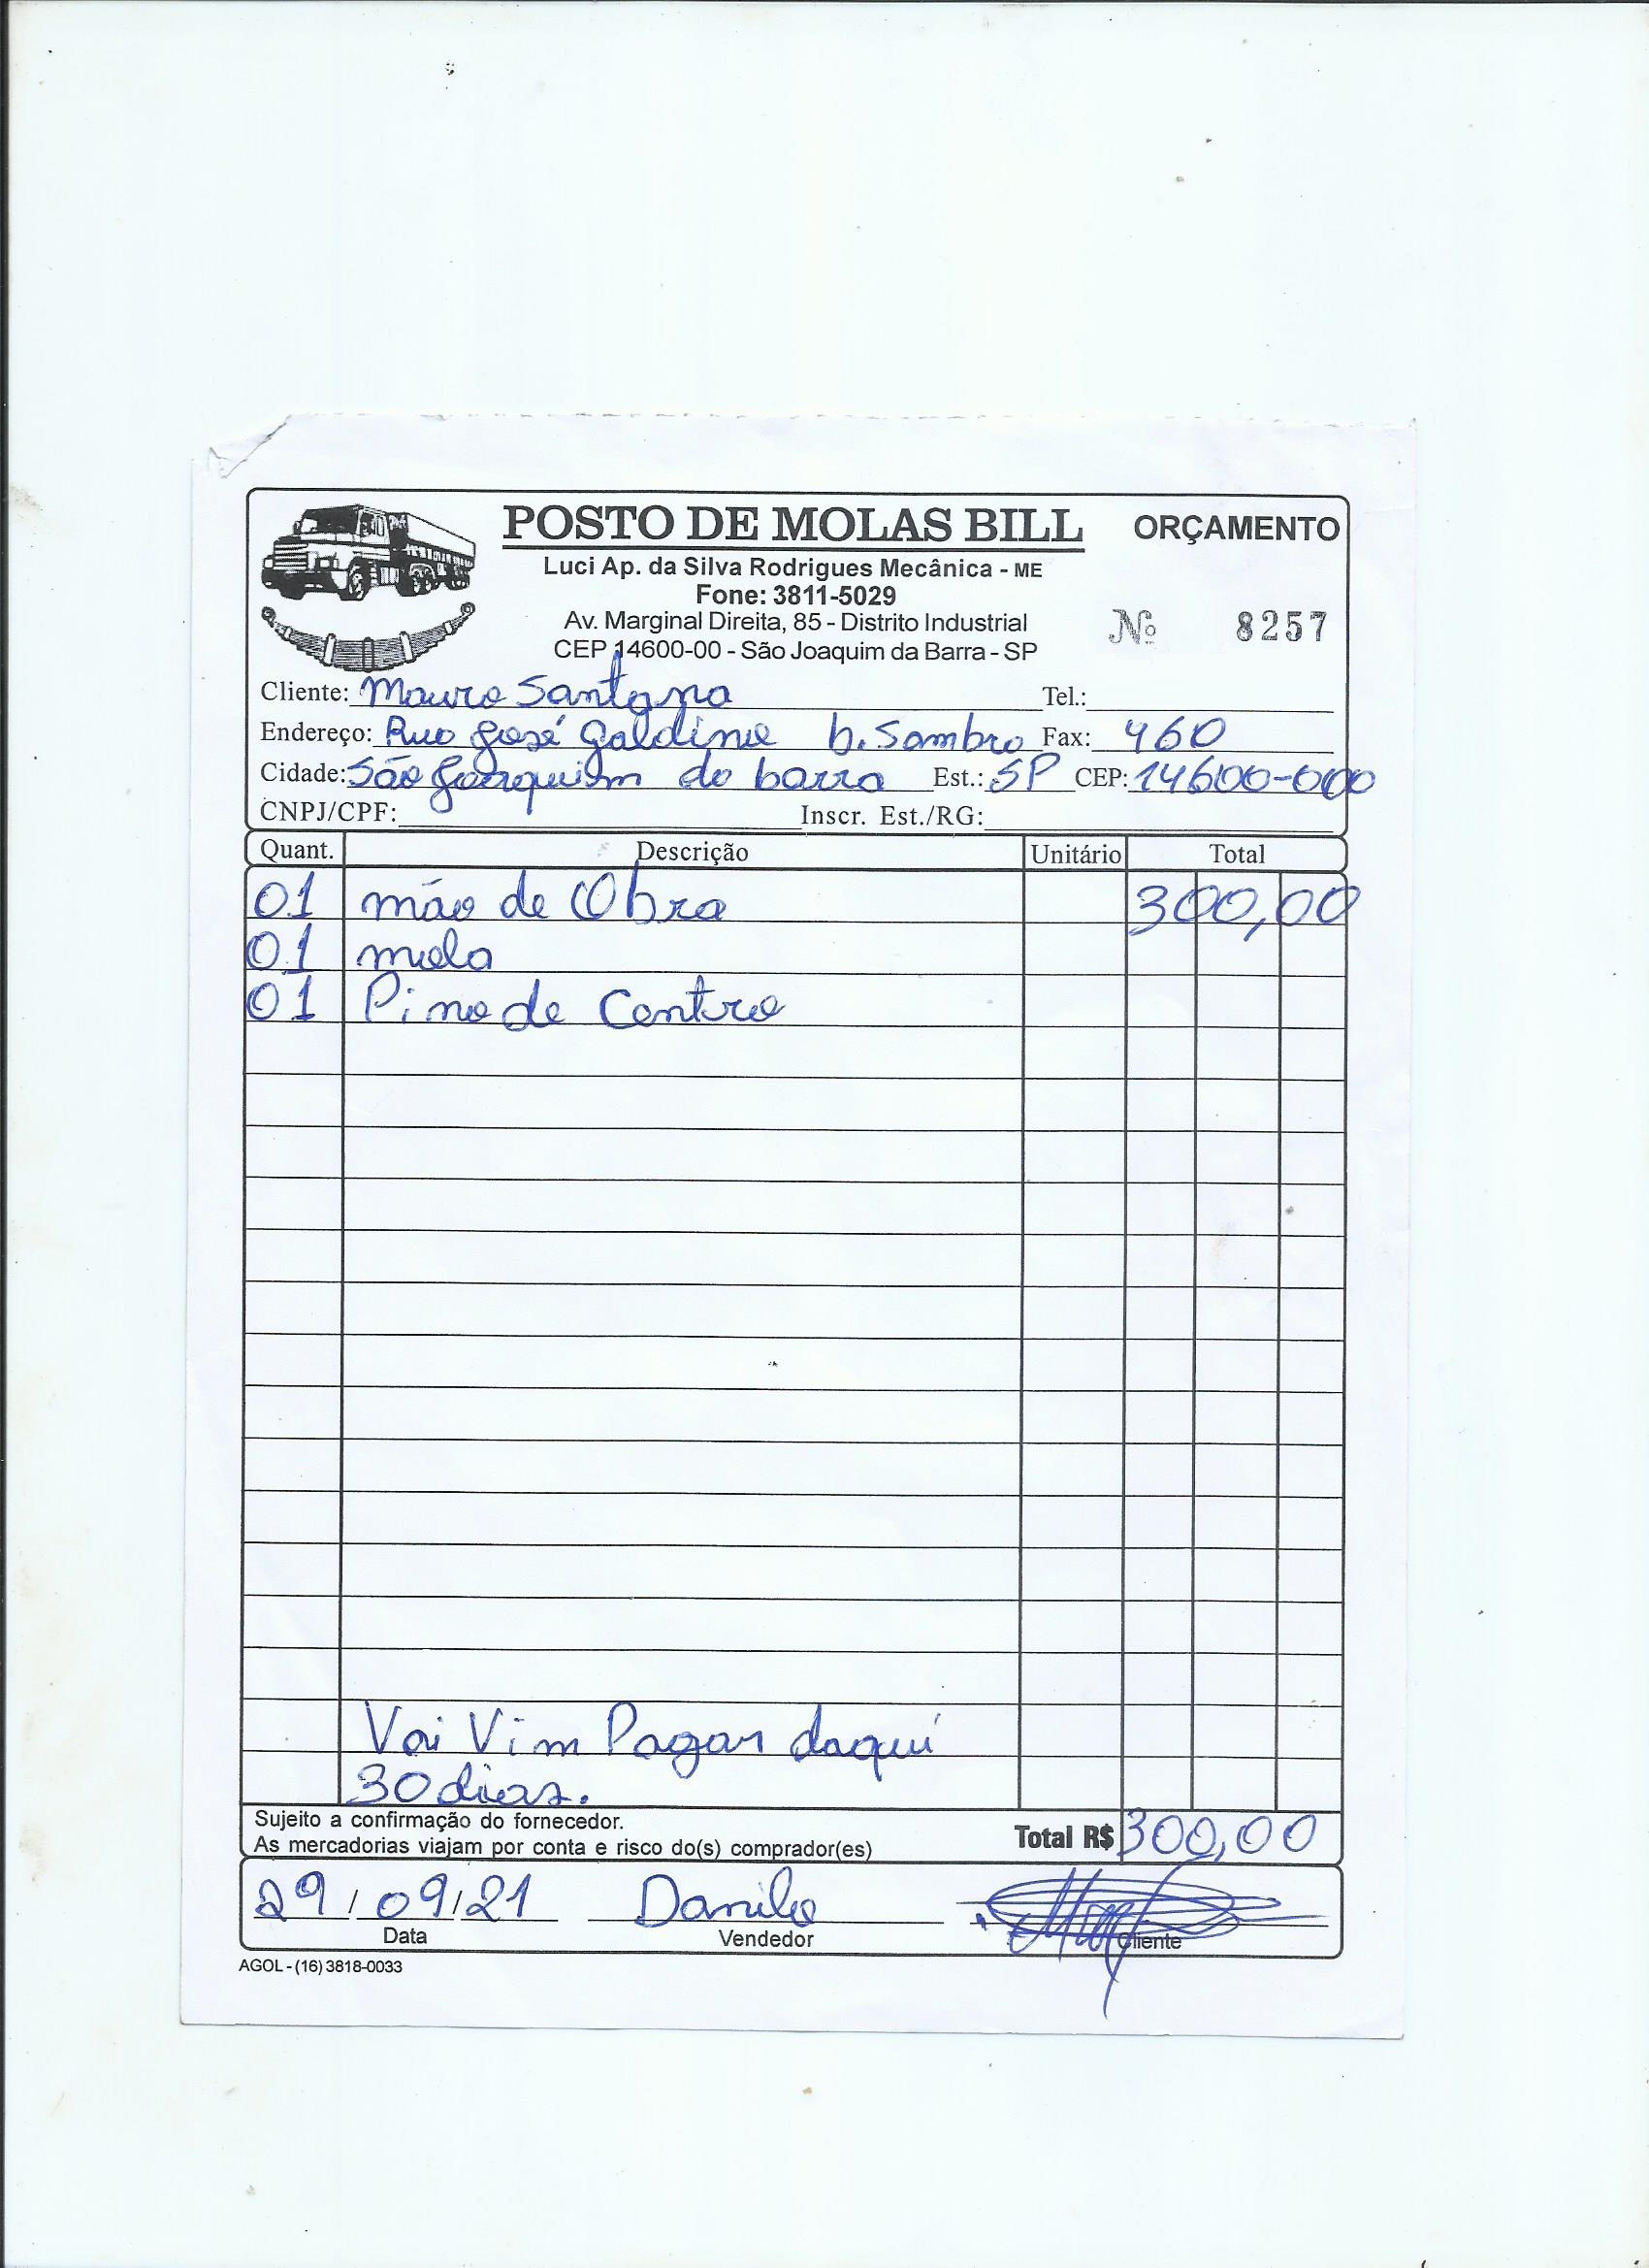 POSTO DE MOLAS BILL ORÇAMENTO
Luci Ap. da Silva Rodrigues Mecânica - ME
Fone: 3811-5029
Av. Marginal Direita, 85 - Distrito Industrial
Nº 8257
CEP 14600-00 - São Joaquim da Barra - SP
Cliente: Mauro Santana Tel.:
Endereço: Rua José Galdino b. Fax: 460
Cidade: São Joaquim da barra Est.: SP CEP: 14600-000
CNPJ/CPF: Inscr. Est./RG:
Quant. Descrição Unitário Total
01 mão de Obra 300,00
01 mola
01 Pino de Centro
Vai Vim Pagar daqui
30 dias.
Sujeito a confirmação do fornecedor.
As mercadorias viajam por conta e risco do(s) comprador(es) Total R$ 300,00
29/09/21 Danilo
Data Vendedor Cliente
AGOL - (16) 3818-0033